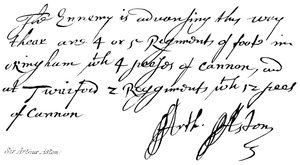 The Ennemy is advansing this way
thear are 4 or 5 Regiments of foote in
okingham with 4 peeses of cannon, and
at Twiford 2 Reygments with 12 pees
of Cannon
Arth: Aston
Sir Arthur Aston.